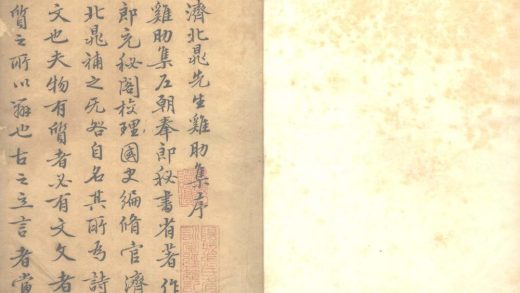 濟北晁先生雞肋集序
雞肋集左朝奉郎秘書省著作
郎充秘閣校理國史編脩官濟
北晁補之无咎自名其所為詩
文也夫物有質者必有文文者
質之所以辯也古之立言者當